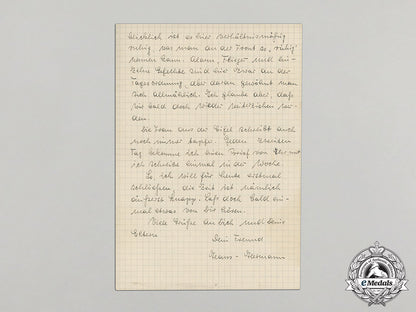 wirklich ist es hier verhältnismäßig
ruhig, was man an der Front so „ruhig"
nennen kann. Alarm, Flieger und ein-
zelne Gefechte sind hier zwar an der
Tagesordnung, aber daran gewöhnt man
sich allmählich. Ich glaube aber, daß
wir bald doch wieder weiterziehen wer-
den.
Die Frau aus der Eifel schreibt auch
noch immer tapfer. Jeden
Tag bekomme ich einen Brief von Ihr und
ich schreibe einmal in der Woche.
So, ich will für heute erstmal
schließen, die Zeit ist nämlich
äußerst knapp. Laß doch bald ein-
mal etwas von Dir hören.
Viele Grüße an Dich und Deine
Eltern
Dein Freund
Hans-Hermann